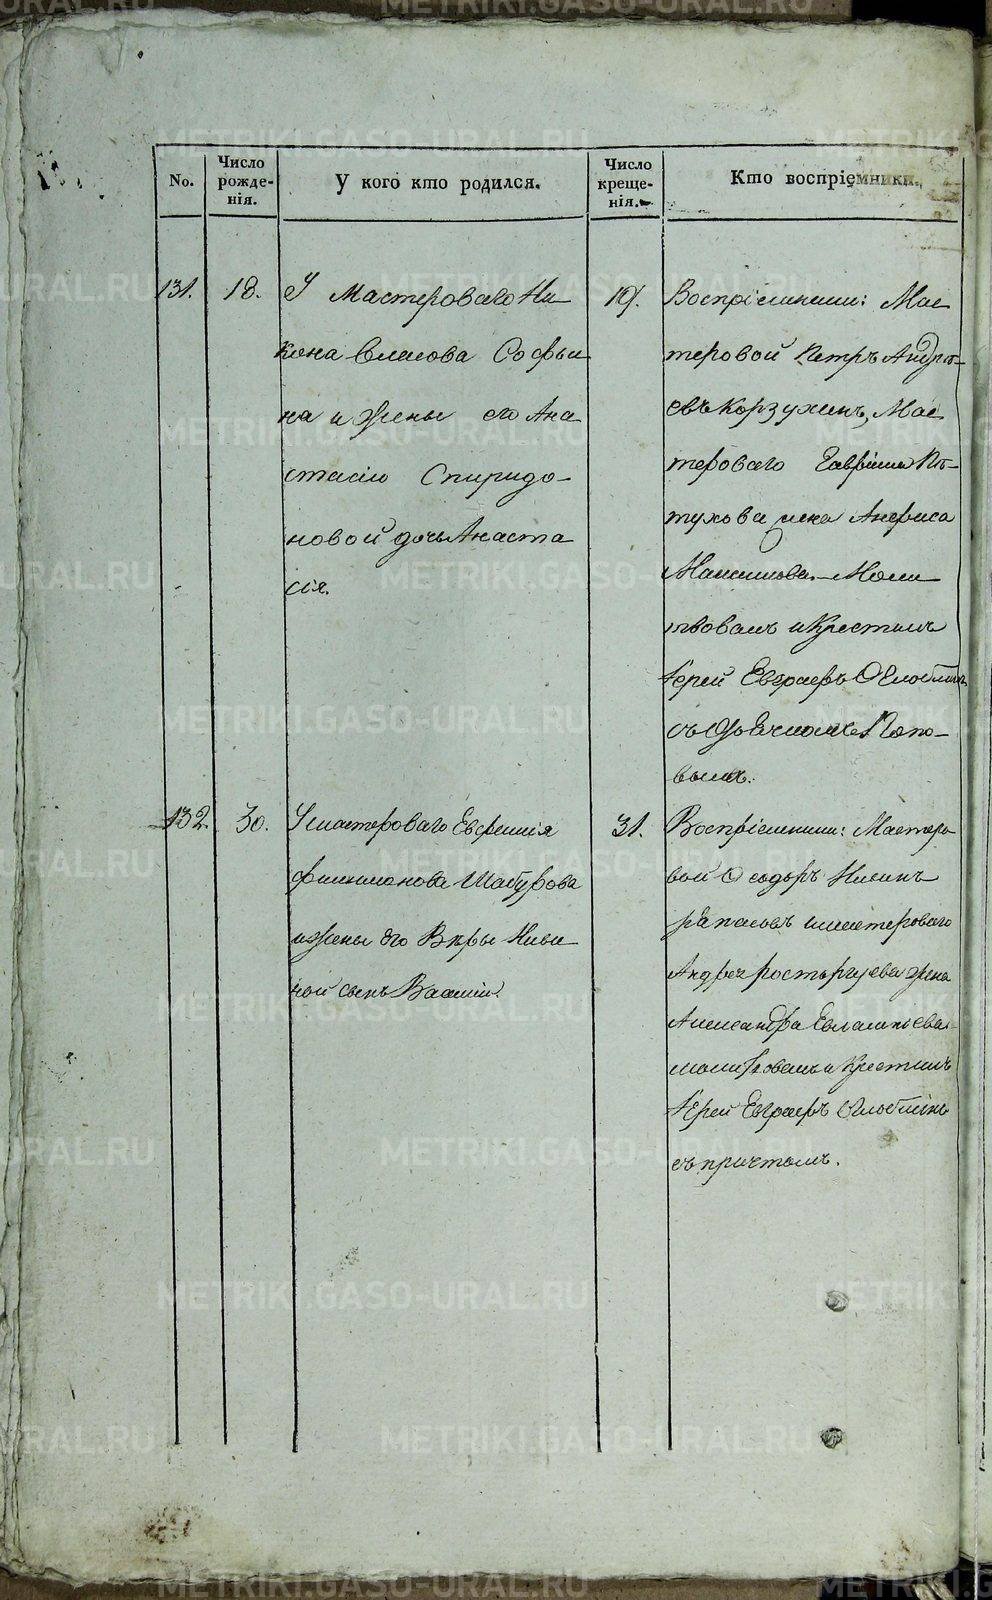 No.
Число рожде-нія.
У кого кто родился.
Число креще-нія.
Кто воспріемники.
131.
18.
У Мастероваго Ни
кона Власова Софьи
на и жены его Ана
стасіи Спиридо-
новой дочь Анаста
сія.
19.
Воспріемники: Мас
теровой Петръ Андре-
евъ Корзухинъ, Мас
тероваго Гавріила Пѣ-
тухова жена Анфиса
Максимова. Моли
твовалъ и Крестилъ
Іерей Евграфъ Оглоблинъ
съ Дьячкомъ Попо-
вымъ.
132.
30.
У мастероваго Евфимія
Филимонова Шабурова
и жены его Вѣры Ники
ной сынъ Василій.
31.
Воспріемники: Мастеро
вой Ѳеодоръ
и мастероваго
Андрея Расторгуева жена
Александра Евлампіева
молитвовалъ и Крестилъ
Іерей Евграфъ Оглоблинъ
съ причтомъ.
METRIKI.GASO-URAL.RU